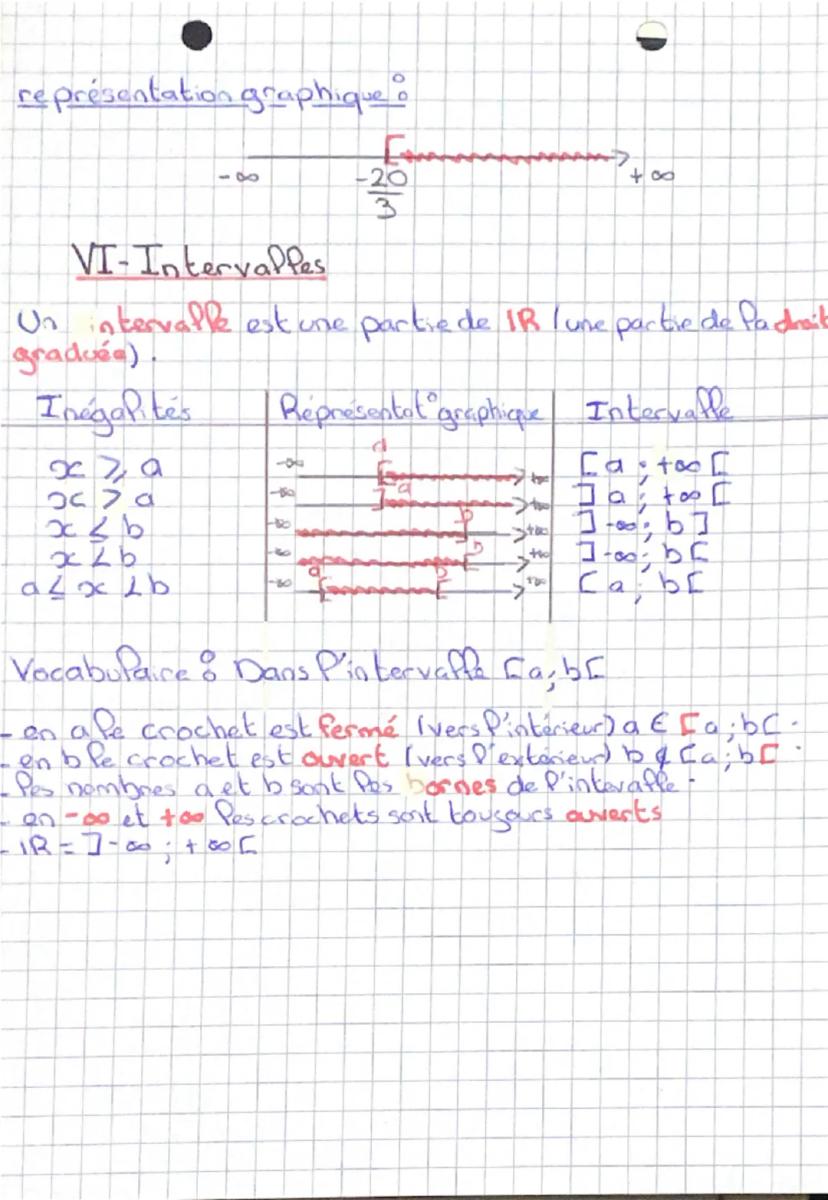 représentation graphique :
-∞ -20/3 +∞
VI- Intervalles
Un intervalle est une partie de IR (une partie de la droit
graduée).
Inégalités Réprésentat° graphique Intervalle
x ⩾ a -∞ a +∞ [a ; +∞[
x > a -∞ a +∞ ]a ; +∞[
x ≤ b -∞ b +∞ ]-∞ ; b]
x < b -∞ b +∞ ]-∞ ; b[
a ≤ x < b -∞ a b +∞ [a ; b[
Vocabulaire : Dans l'intervalle [a ; b[
- en a le crochet est fermé (vers l'intérieur) a ∈ [a ; b[.
- en b le crochet est ouvert (vers l'extérieur) b ∉ [a ; b[.
- les nombres a et b sont les bornes de l'intevalle.
- en -∞ et +∞ les crochets sont tousours ouverts
- IR = ]-∞ ; +∞[